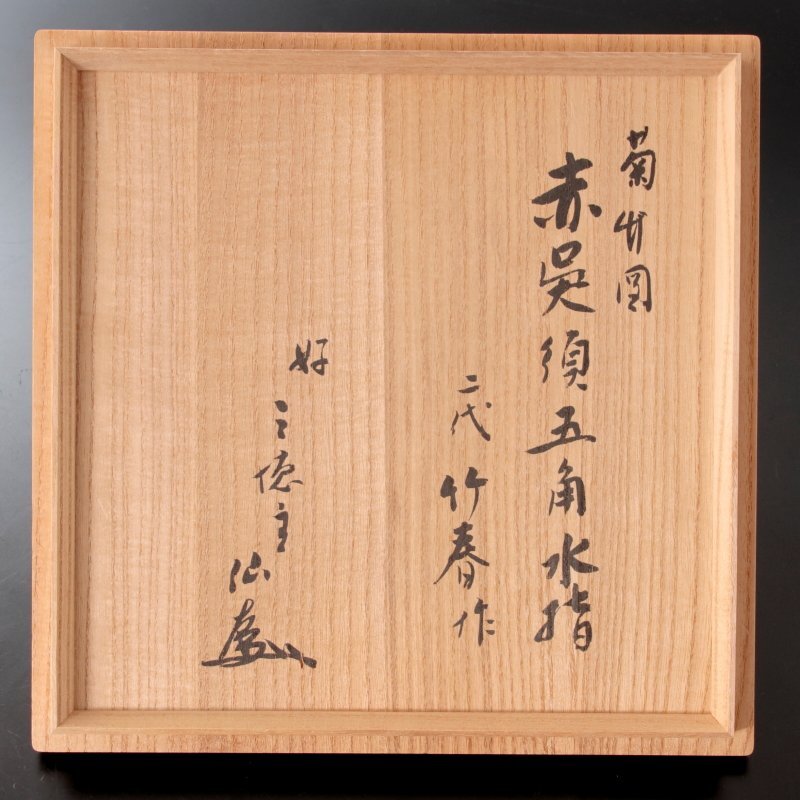 菊竹図
赤呉須五角水指
二代 竹春作
好
三徳主 仙